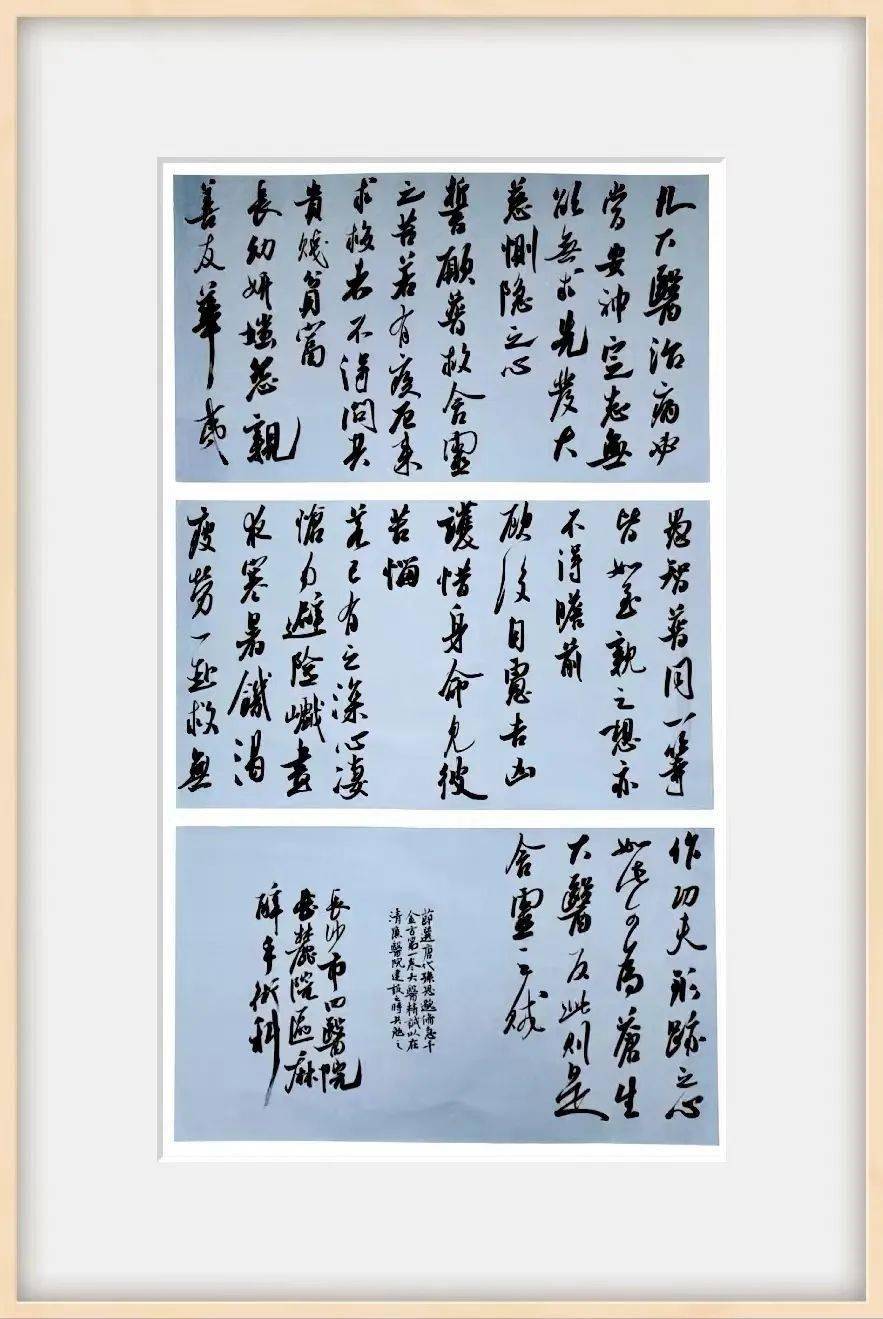 凡大醫治病必
當安神定志無
欲無求先發大
慈惻隐之心
誓願普救含靈
之苦若有疾厄来
求救者不得問其
貴賤貧富
長幼妍媸怨親
善友華夷
愚智普同一等
皆如至親之想亦
不得瞻前
顧後自慮吉凶
護惜身命見彼
苦惱
若己有之深心悽
愴勿避險巇晝
夜寒暑饑渴
疲勞一赴救無
作功夫形跡之心
如此可為蒼生
大醫反此則是
含靈之賊
節選唐代孫思邈備急千
金方第一卷大醫精誠以在
清廉醫院建設之時共勉之
長沙市四醫院
岳麓院區麻
醉手術科